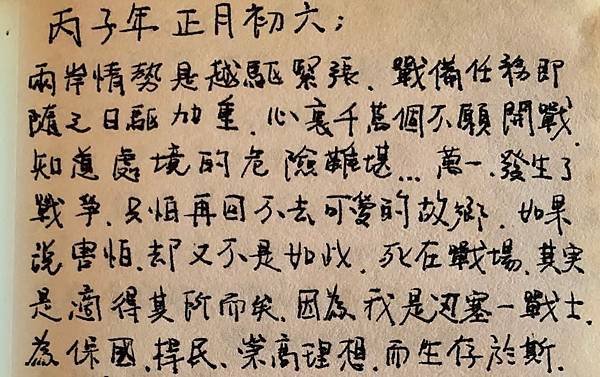 丙子年 正月初六；
兩岸情勢是越驅緊張、戰備任務即
隨之日驅加重，心裏千萬個不願開戰，
知道處境的危險難堪…萬一，發生了
戰爭，只怕再回不去可愛的故鄉，如果
說害怕，却又不是如此，死在戰場，其实
是適得其所而矣，因為我是边塞一戰士，
為保國、捍民、崇高理想，而生存於斯，